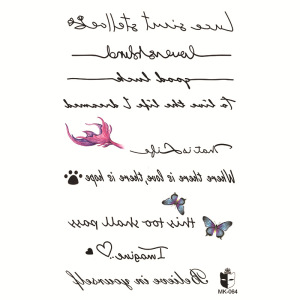 Luce sint stellae
lovers blind
good luck
To live the life I dreamed
That is Life
Where there is love, there is hope
this too shall pass
Imagine...
Believe in yourself
MK-064